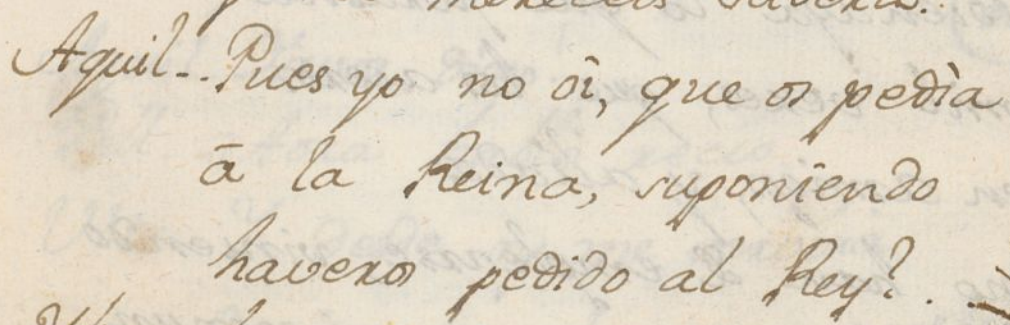 merecéis
Aquil-. Pues yo no oì, que os pedìa
à la Reina, suponiendo
haveros pedido al Rey?.